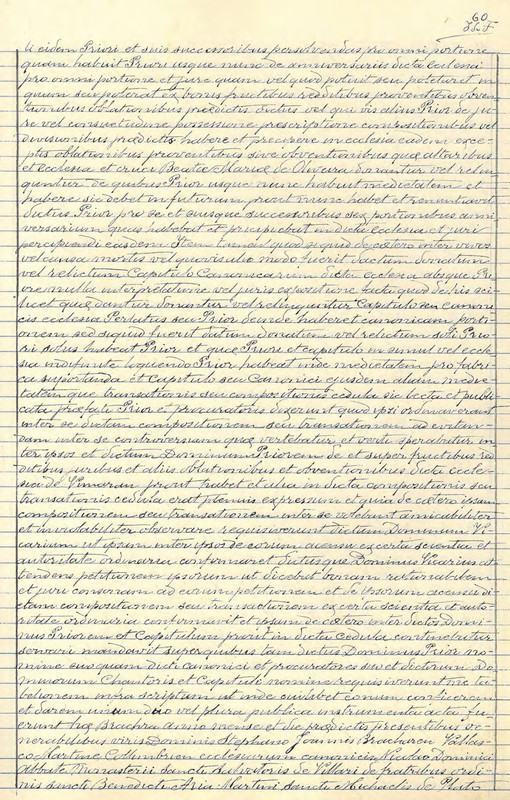 60
li eidem Priori et suis successoribus persolvendas pro omni portione
quam habuit Priori usque nunc de anniversariis dictæ ecclesiæ
pro omni portione et jure quam vel quod potuit seu poterit in
quum seu poterat ex bonis fructibus redditibus proventibus Aven
tionibus oblationibus prædictis dictus vel quivis alius Prior de ju
re vel consuetudine possessione prescriptione compositionibus vel
divisionibus prædictis habere et percipere in ecclesia eadem exce
ptis oblationibus proventibus sive obventionibus quæ altaribus
et ecclesiæ et cruci Beatæ Mariæ de Oliveira donantur vel relin
quntur de quibus Prior usque nunc habuit medietatem et
habere sic debet in futurum prout nunc habet et renuntiavit
dictus Prior pro se et suisque successoribus sex portionibus anni
versarium quas habebat et precipiebat in dicta ecclesia et juri
percipiendi easdem Item tamen quod si quid de cætero inter vivos
vel causa mortis vel quovis alio modo fuerit datum donatum
vel relictum Capitulo Canonicorum dictæ ecclesiæ absque Pri
ore nulla interpretatione vel juris expositione facta quod de his sci
licet quæ dantur donantur vel relinquuntur Capitulo seu canoni
cis ecclesiæ Perlatus seu Prior deinde haberet canonicam porti
onem sed si quid fuerit datum donatum vel relictum soli Prio
ri solus habeat Prior et quæ Priori et capitulo in simul vel eccle
siæ indifinite loquendo Prior habeat inde medietatem pro fabri
ca supportanda et capitulo seu Canonici ejusdem aliam medie
tatem quæ transationis seu compositionis cedula sic lecta et publi
cata præfati Prior et procuratores dixerunt quod ipsi ordinaverant
inter se dictam compositionem seu transationem ad evitan
dam inter se controversiam quæ vertebatur et verti sperabatur in
ter ipsos et dictum Dominum Priorem de et super fructibus red
ditibus juribus et aliis oblationibus et obventionibus dictæ eccle
siæ de Vimaran prout habet et alia in dicta compositionis seu
transationis cedula erat plenius expressum et quia de cætero ipsam
compositionem seu transationem inter se volebant amicabiliter
et inviolabiliter observare requisiverunt dictum Dominum Vi
carium ut ipsam inter ipsos de eorum acensu ex certa scientia et
autoritate ordinaria confirmaret dictusque Dominus Vicarius at
tendens petitionem ipsorum ut dicebat bonam rationabilem
et juri consonam ad eorum petitionem et de ipsorum accensu di
ctam compositionem seu transactionem ex certa scientia et auto
ritate ordinaria confirmavit et ipsum de cætero inter dictos Domi
nus Priorem et Capitulum prout in dicta cedula continebatur
servari mandavit super quibus tam dictus Dominus Prior no
mine suo quam dicti canonici et procuratores suo et dictorum Do
minorum Chantoris et Capituli nomine requisiverunt me ta
belionem infra scriptum ut inde cuilibet eorum conficerem
et darem unum duo vel plura publica instrumenta acta fu
erunt hæc Brachra anno mense et die prædictis presentibus ve
nerabilibus viris Dominis Stephano Joannis Bracharen Vallas
co Martini Colimbrien ecclesiarum canonicis Nicolao Dominici
abbate Monasterii sancti Salvatoris de Villari de fratribus ordi
nis sancti Benedicti Aria Martini sancti Michaelis de Prato